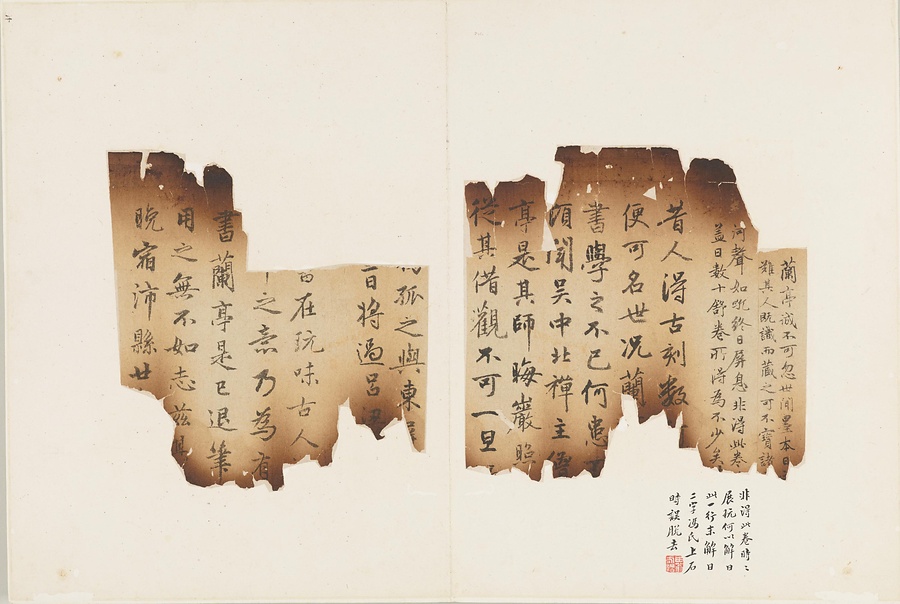 蘭亭誠不可忽世間墨本日
難其人既識而藏之可不寶諸
河聲如吼終日屏息非得此卷
益日數十舒卷所得為不少矣
昔人得古刻數
便可名世況蘭
書學之不已何患
頃聞吳中北禪主僧
亭是其師晦巖照
從其借觀不可一旦
孤之與東
日將過呂
在玩味古人
之意乃為有
書蘭亭是已退筆
用之無不如志茲
晚宿沛縣廿
非得此卷時〻
展玩何以解日
此一行末解日
二字馮氏上石
時誤脫去